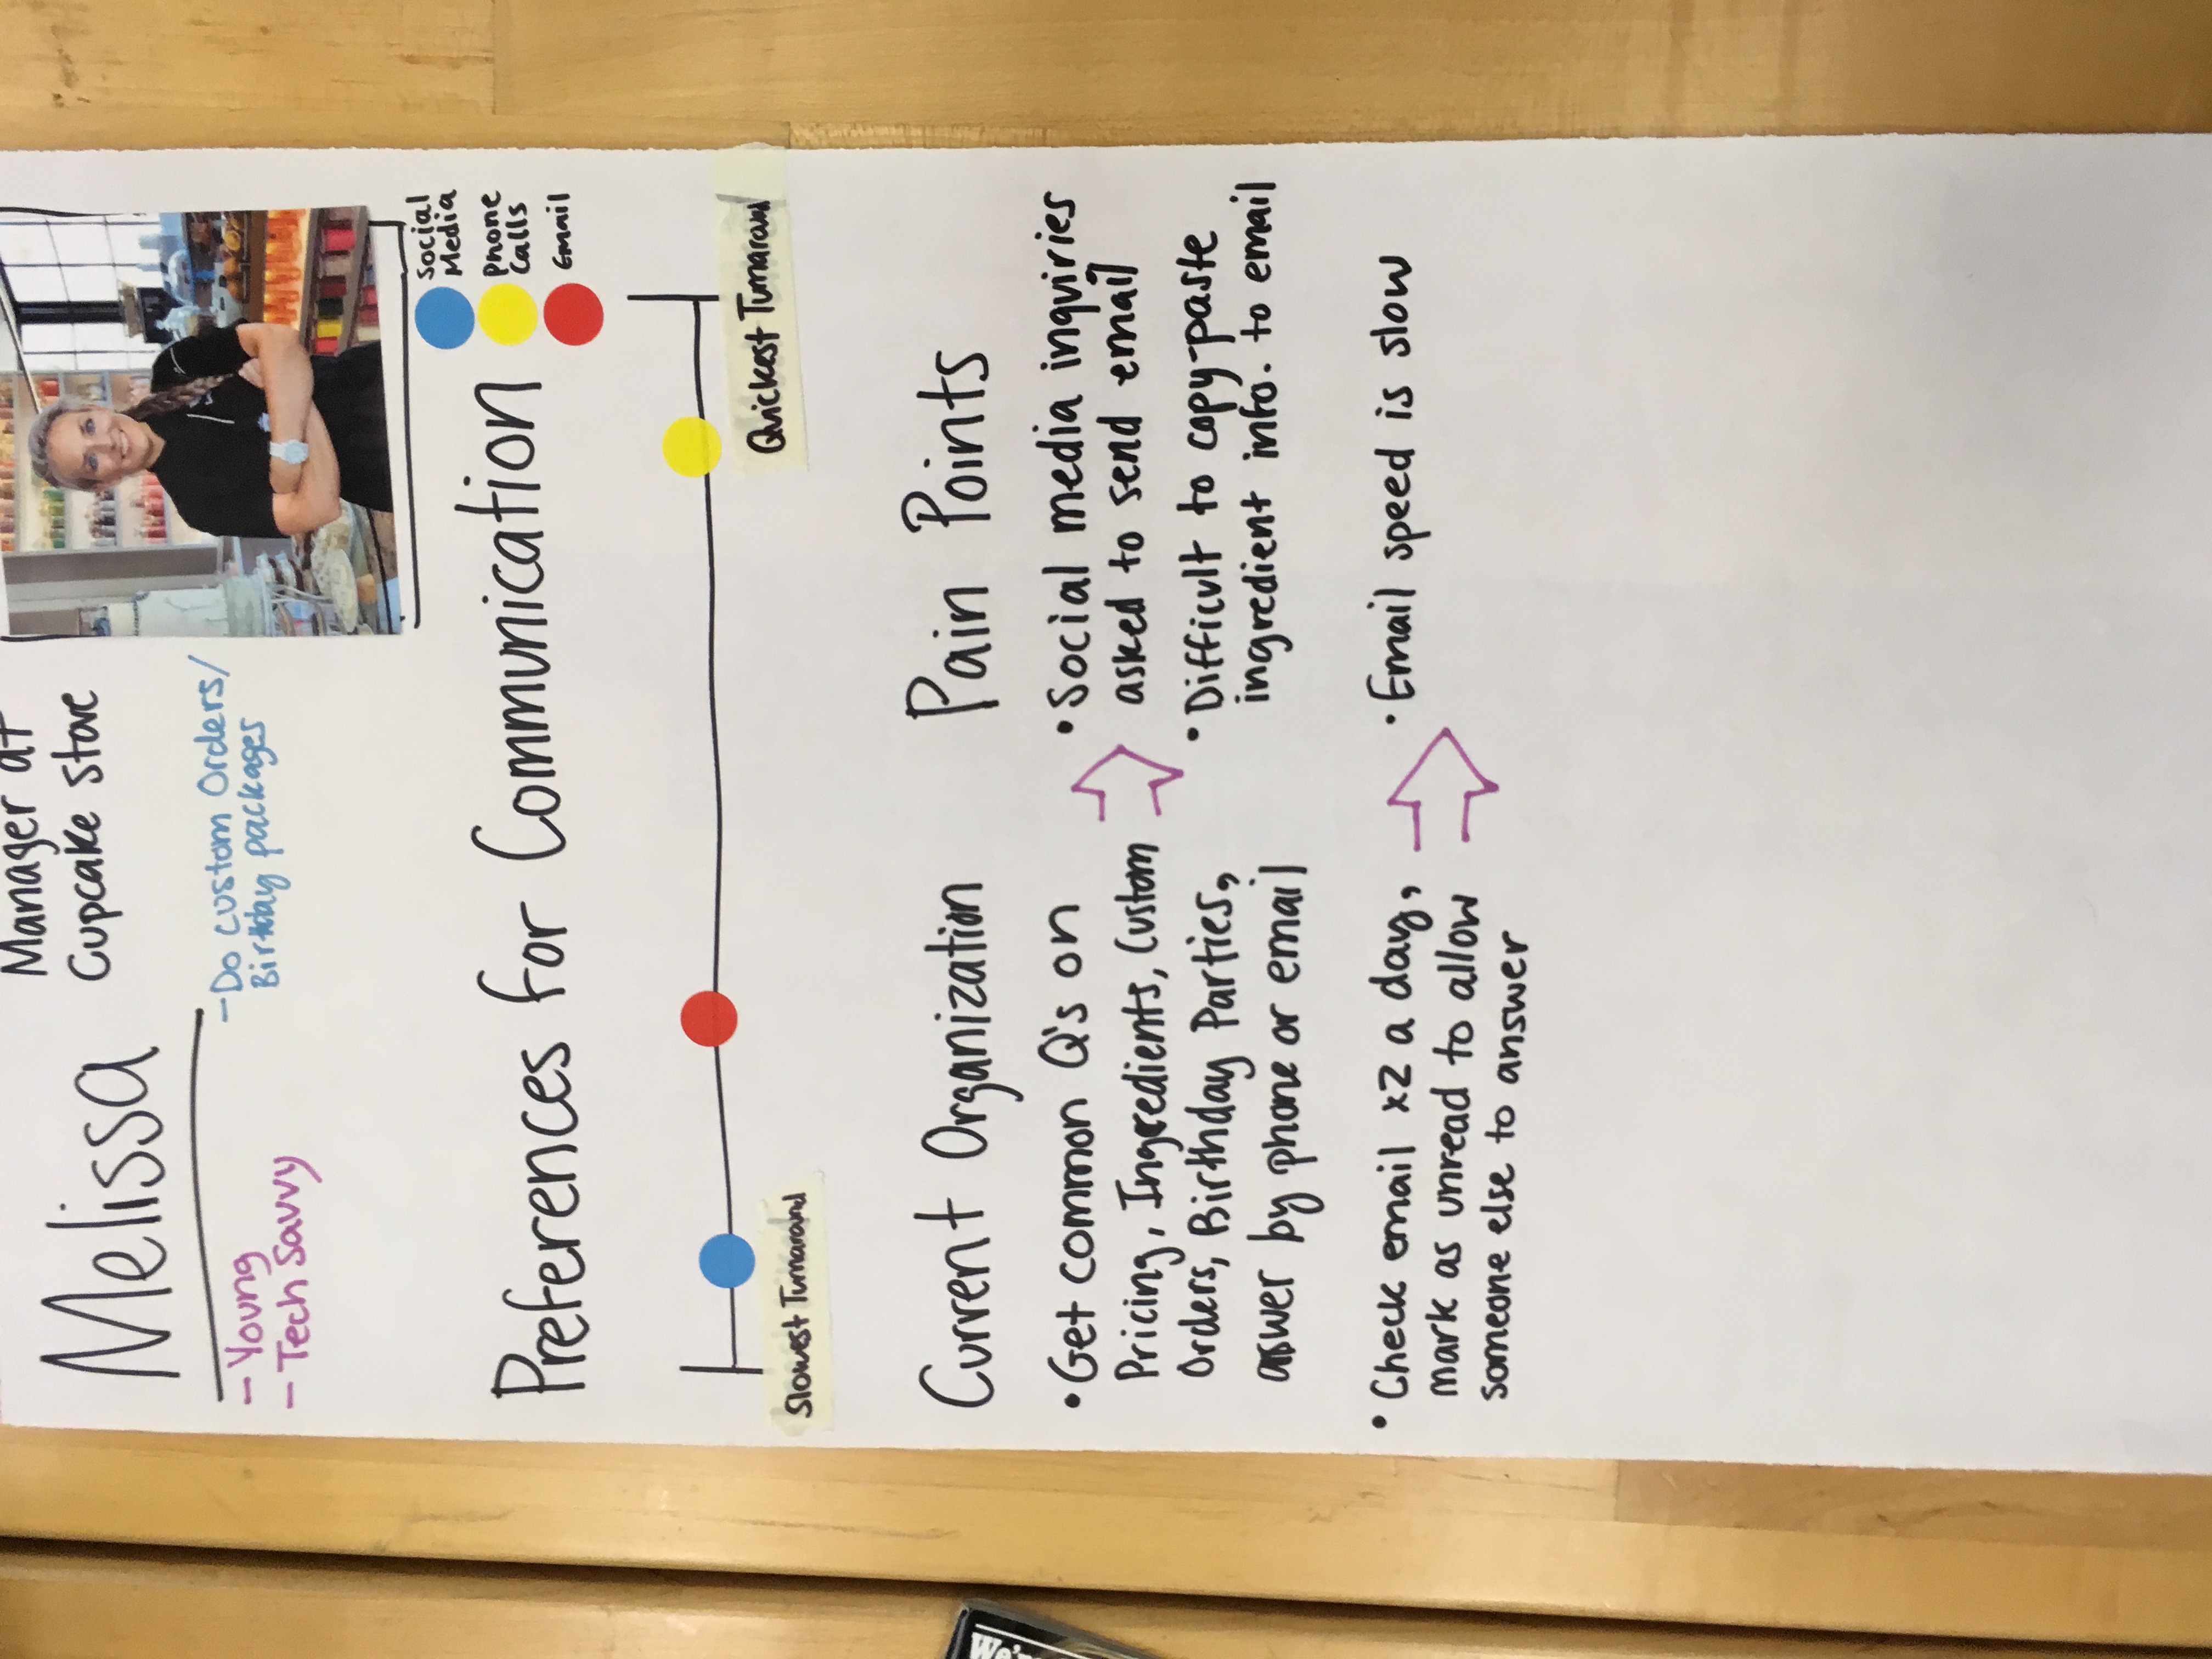 Melissa
Manager at
Cupcake Store
- Young
- Tech Savvy
- Do custom Orders/
Birthday packages
Social
Media
Phone
Calls
Email
Preferences for Communication
Slowest Turnaround
Quickest Turnaround
Current Organization
• Get common Q's on
Pricing, Ingredients, Custom
Orders, Birthday Parties,
answer by phone or email
• Check email x2 a day,
mark as unread to allow
someone else to answer
Pain Points
• Social media inquiries
asked to send email
• Difficult to copy-paste
ingredient info. to email
• Email speed is slow